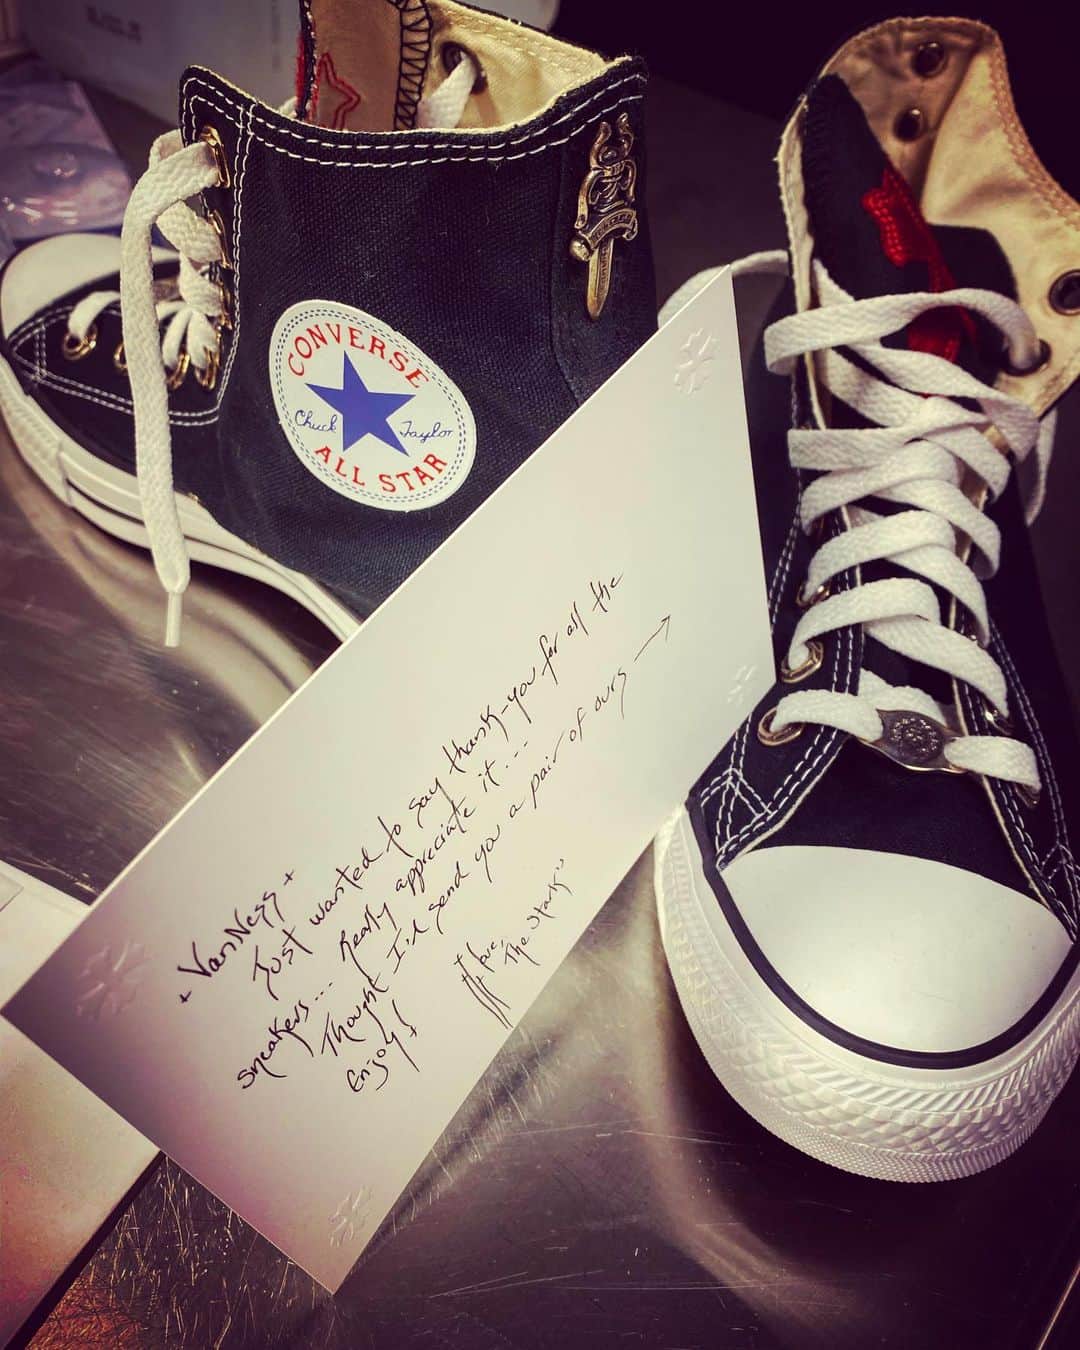 CONVERSE
Chuck Taylor
ALL STAR
+ VanNess +
Just wanted to say thank-you for all the
sneakers... Really appreciate it...
Thought I'd send you a pair of ours →
Enjoy!
Love,
"The Starks"